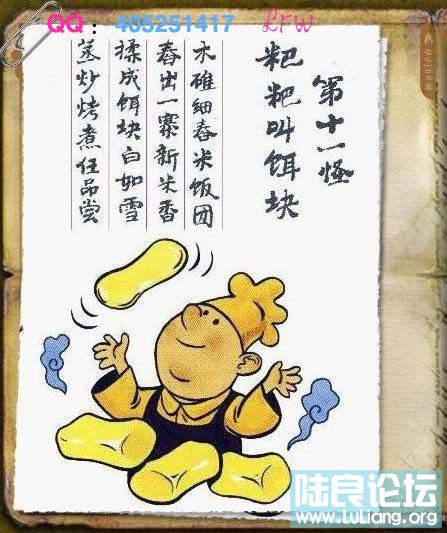 QQ：405251417 Lrw
第十一怪
粑粑叫饵块
木碓细舂米饭团
舂出一寨新米香
揉成饵块白如雪
蒸炒烤煮任品尝
陆良论坛
www.luliang.org